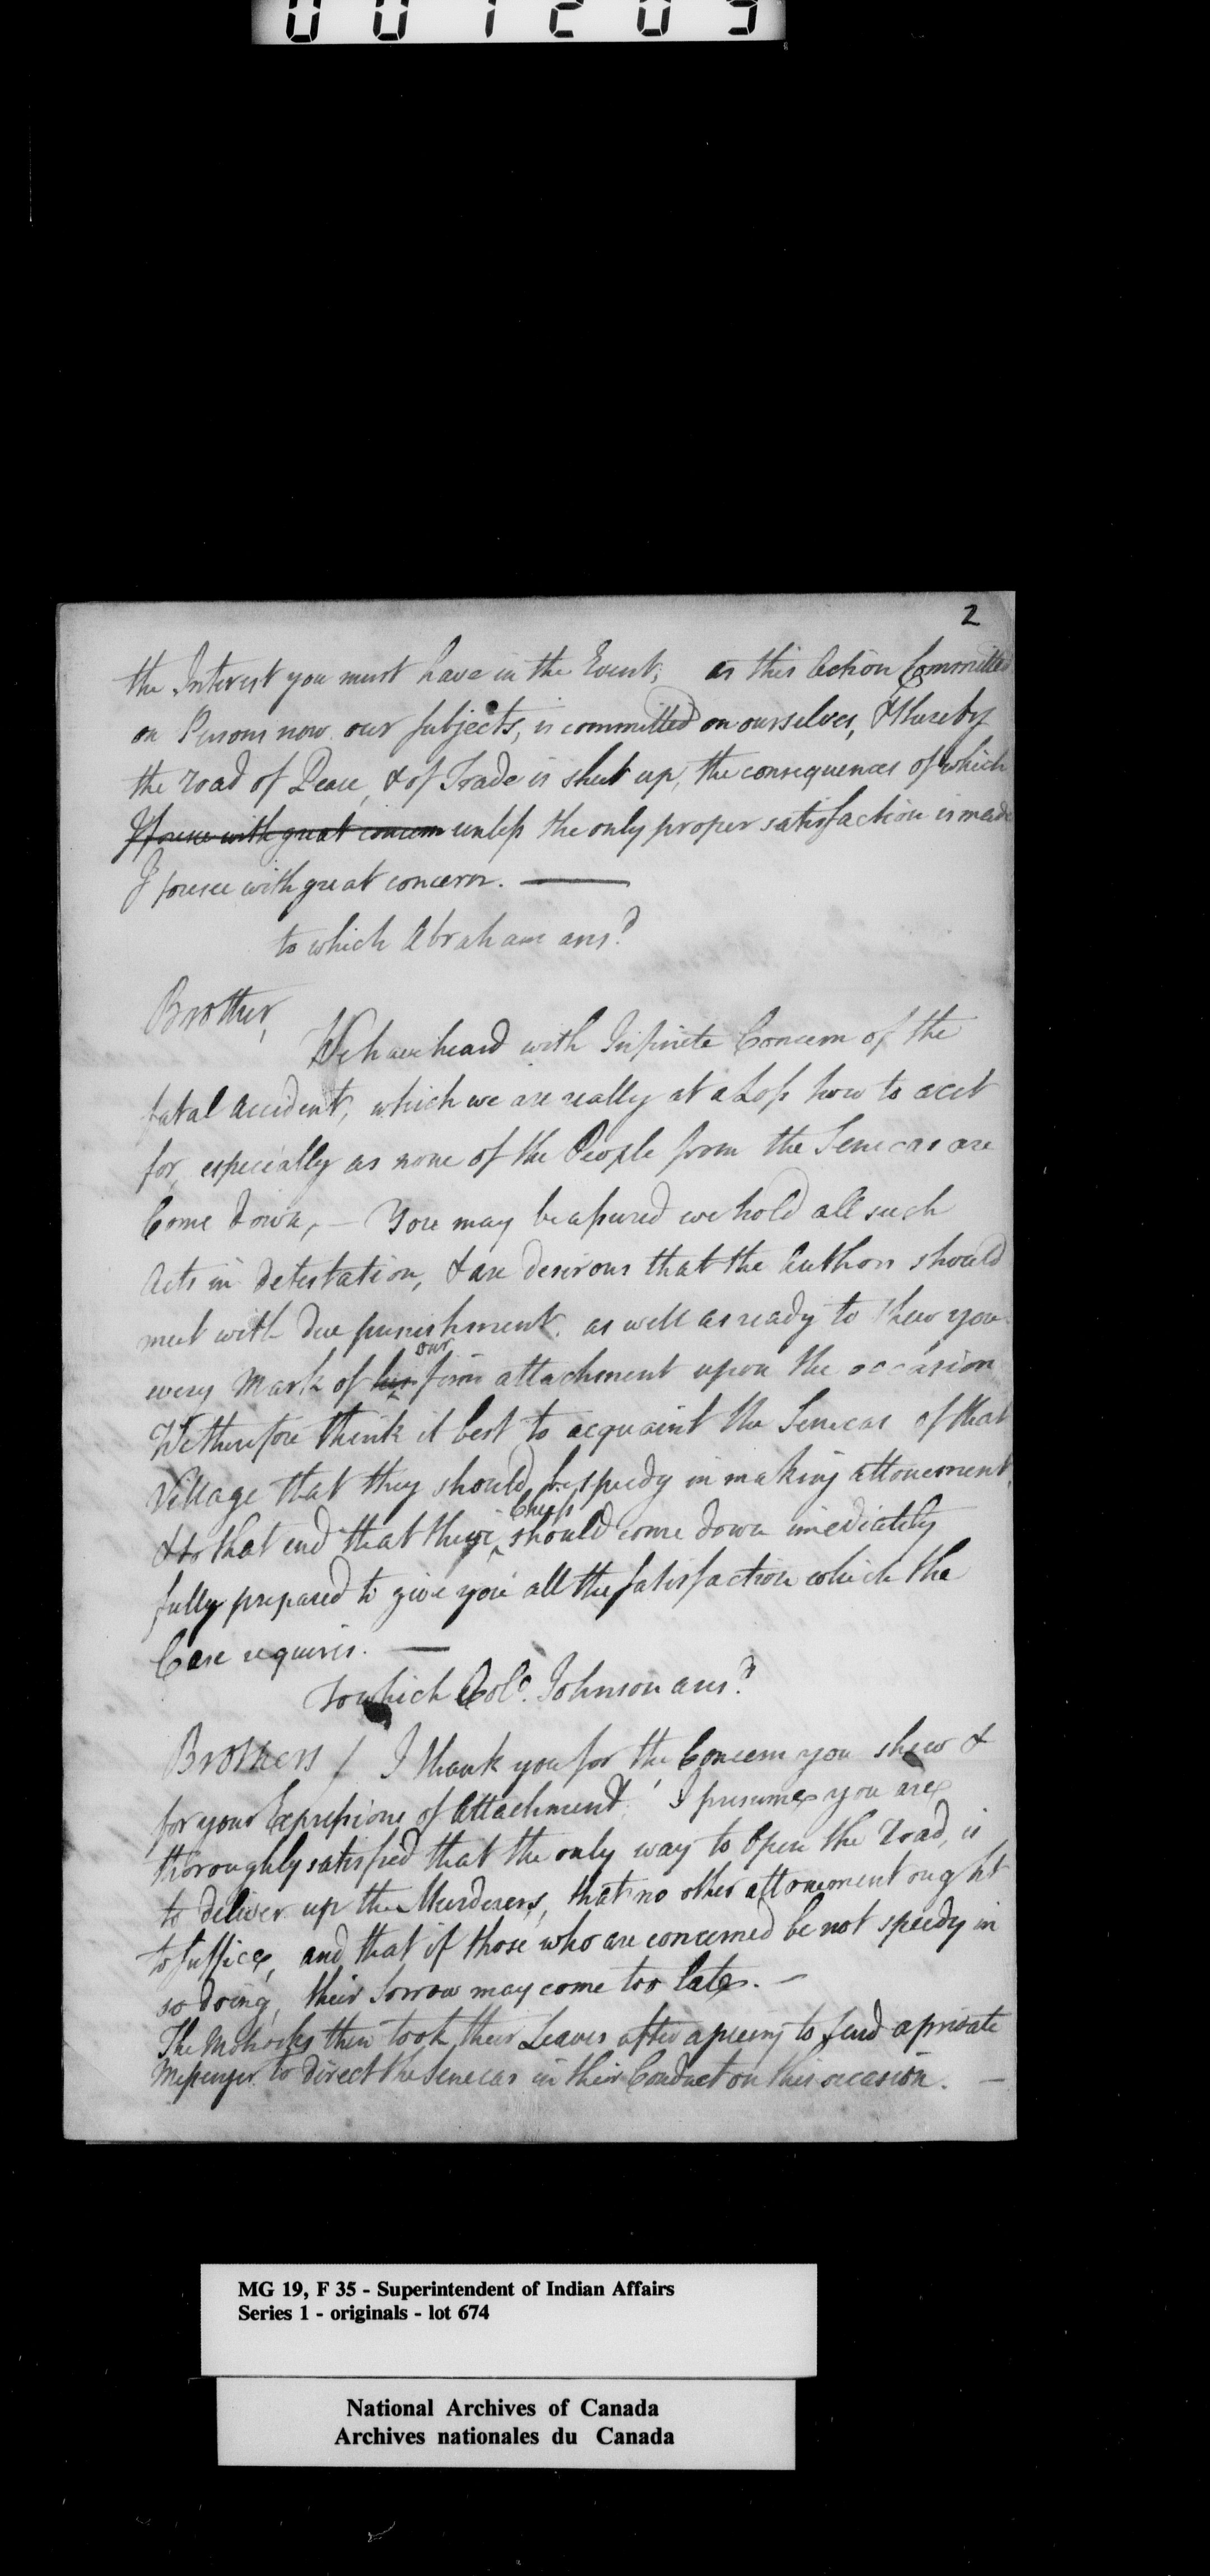 001209
2
the Interest you must have in the Event; as this Action Committed
on Persons now our subjects, is committed on ourselves, & thereby
the road of Peace, & of Trade is shut up, the consequences of which
I foresee with great concern unless the only proper satisfaction is made
I foresee with great concern. —
to which Abraham ansd.
Brother,
We have heard with Infinite Concern of the
fatal accident, which we are really at a Loss how to acct
for, especially as none of the People from the Senecas are
Come down, — You may be assured we hold all such
Acts in detestation, & are desirous that the Authors should
meet with due punishment, as well as ready to shew you
our
every Mark of his firm attachment upon the occasion
We therefore think it best to acquaint the Senecas of that
Village that they should be speedy in making attonement,
Chiefs
& to that end that their should come down imediately
fully prepared to give you all the Satisfaction which the
Case requires. —
To which Colo. Johnson ansd.
Brothers / I thank you for the Concern you shew &
for your Expressions of Attachment. I presume you are
thoroughly satisfied that the only way to Open the road, is
to deliver up the Murderers, that no other attonement ought
to suffice, and that if those who are concerned be not speedy in
so doing, their Sorrow may come too late. —
The Mohocks then took their Leaves after agreeing to send a private
Messenger to direct the Senecas in their Conduct on this occasion. —
MG 19, F 35 - Superintendent of Indian Affairs
Series 1 - originals - lot 674
National Archives of Canada
Archives nationales du Canada